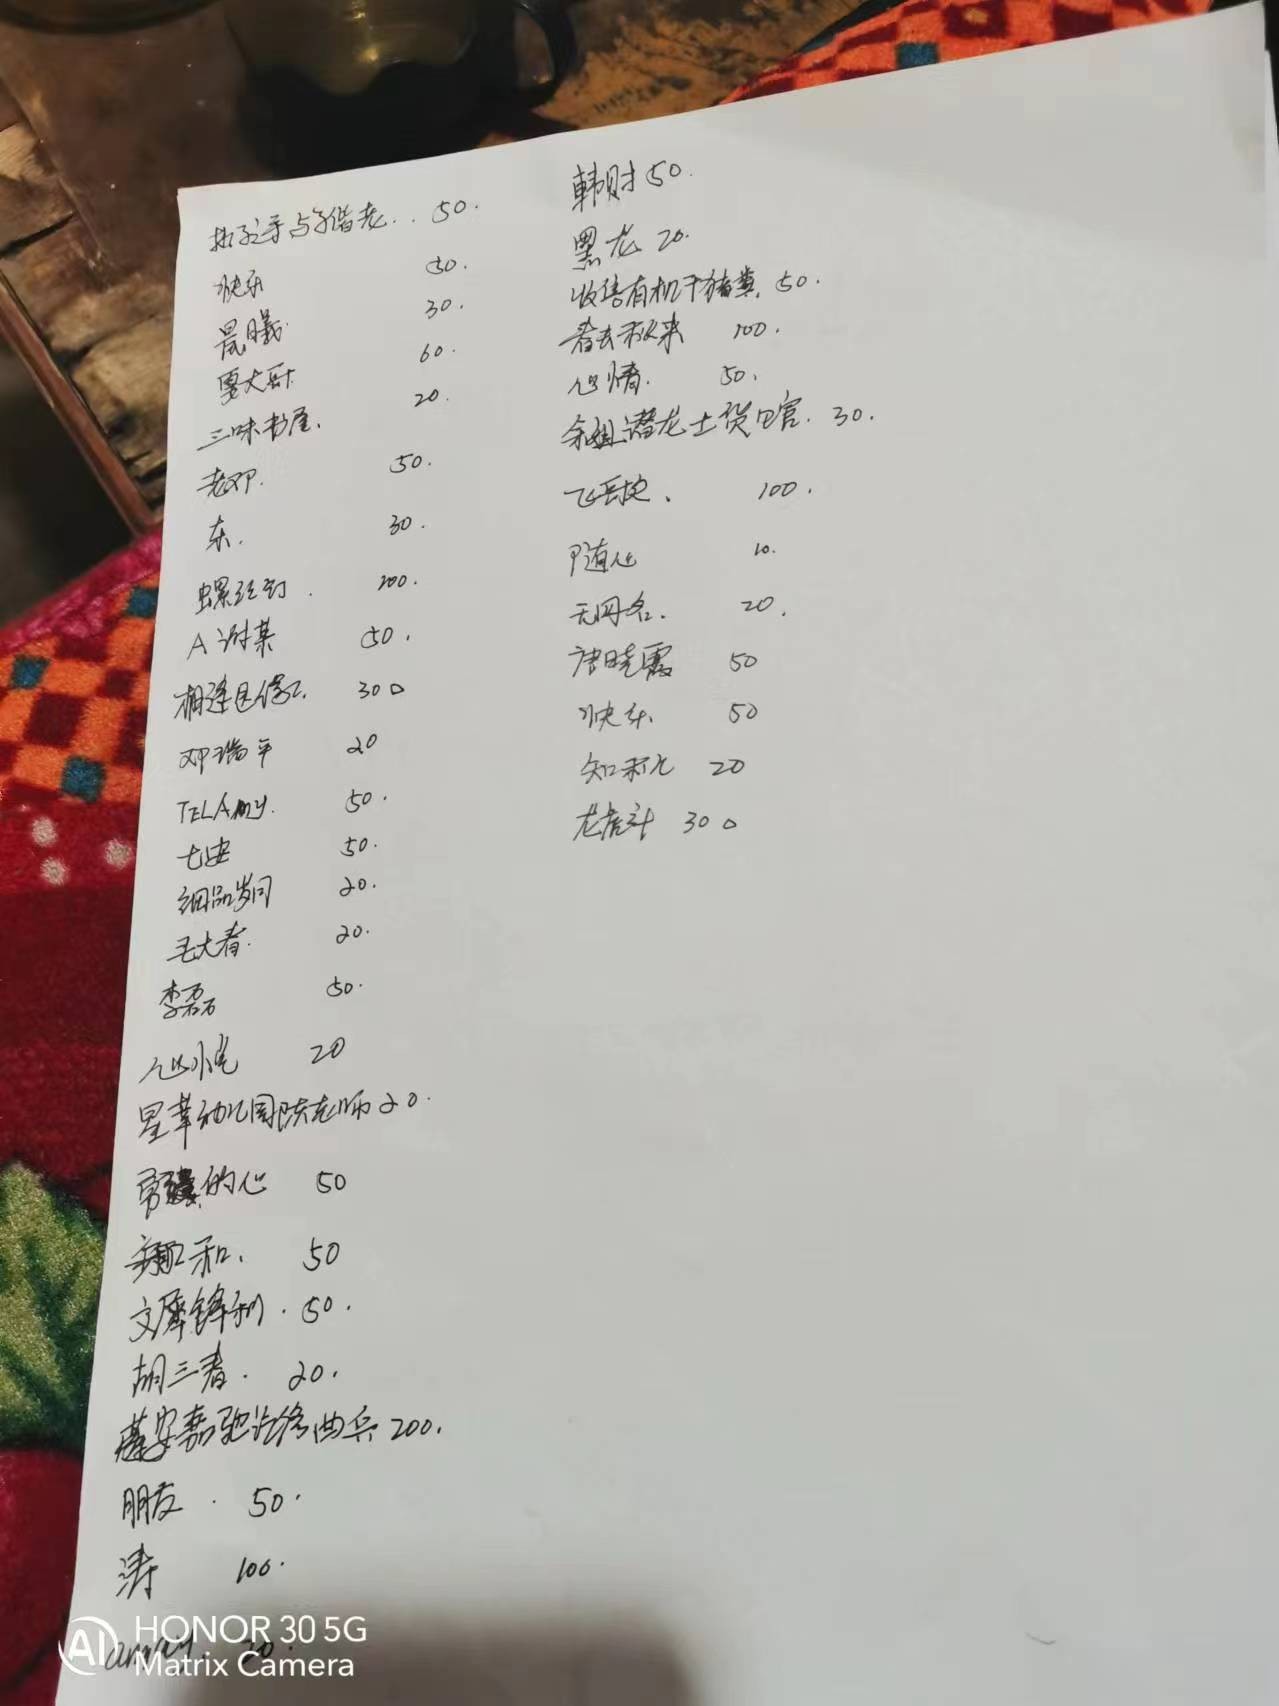 执子之手与子偕老.. 50.
快乐 50.
晨曦. 30.
覃大哥. 60.
三味书屋. 20.
老邓. 50.
东. 30.
螺丝钉. 200.
A 谢某 50.
相逢是缘 300
邓瑞平 20
TELAmy. 50.
七安 50.
细品岁月 20.
毛大春. 20.
李磊 50.
心小宅 20
星苹幼儿园陈老师 20.
的心 50
和. 50
文犀锋利. 50.
胡三春. 20.
安嘉驰汽修曲兵 200.
朋友. 50.
涛 100.
20.
韩财 50.
黑龙 20.
收售有机干猪粪. 50.
春去秋来 100.
心情. 50.
余姐潜龙土货官. 30.
飞毛腿. 100.
随心 10.
无网名. 20.
唐晓霞 50
快乐. 50
知秋 20
龙虎斗 300
AI HONOR 30 5G
Matrix Camera